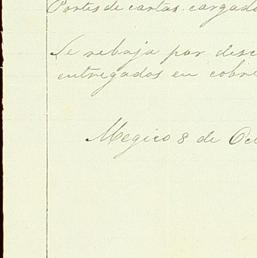 Portes de cartas cargado
Se rebaja por desc
entregados en cobre
Megico 8 de Oct